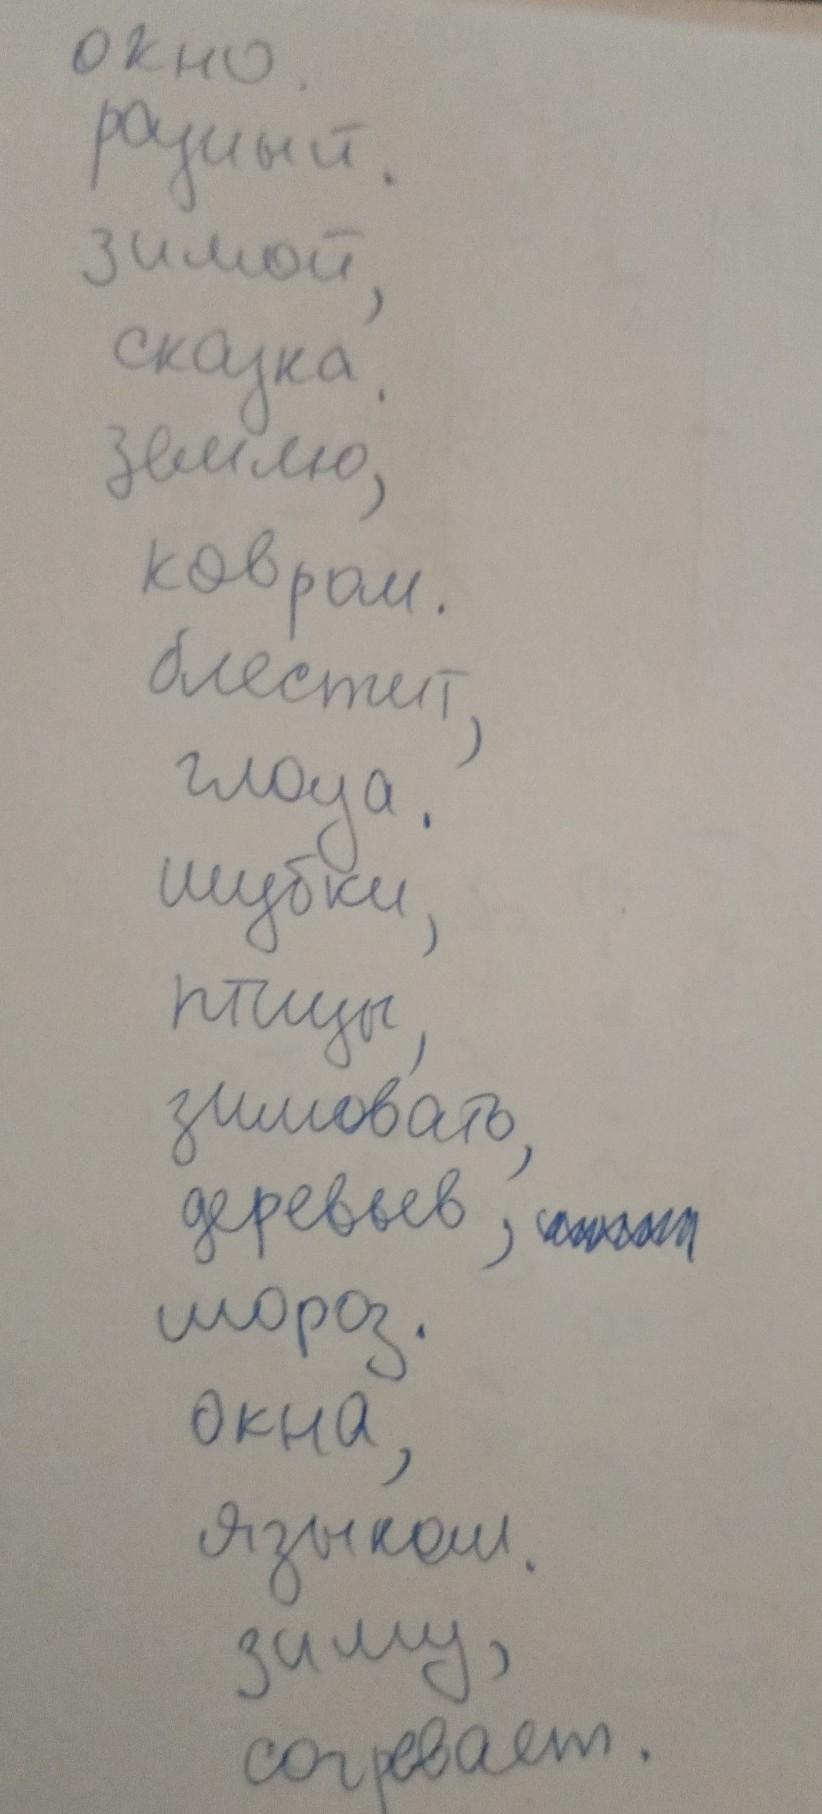 окно.
разный.
зимой,
сказка.
землю,
ковром.
блестит,
глаза.
шубки,
птицы,
зимовать,
деревьев,
мороз.
окна,
языком.
зиму,
согревает.